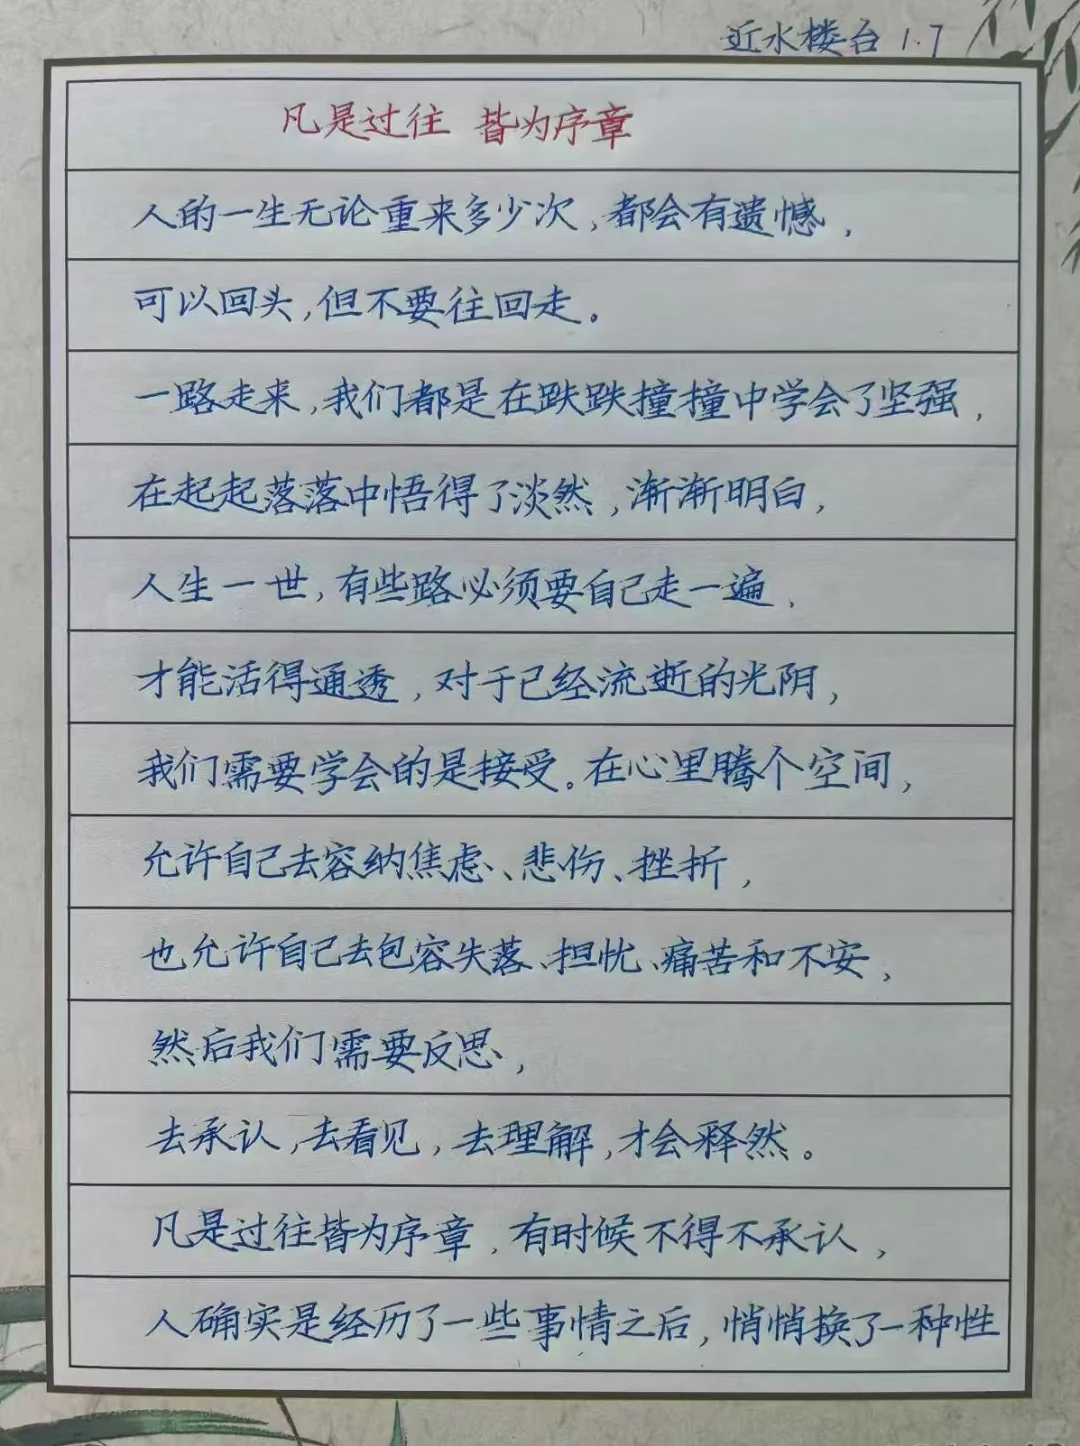 近水楼台 1.7
凡是过往 皆为序章
人的一生无论重来多少次,都会有遗憾,
可以回头,但不要往回走。
一路走来,我们都是在跌跌撞撞中学会了坚强,
在起起落落中悟得了淡然,渐渐明白,
人生一世,有些路必须要自己走一遍,
才能活得通透,对于已经流逝的光阴,
我们需要学会的是接受。在心里腾个空间,
允许自己去容纳焦虑、悲伤、挫折,
也允许自己去包容失落、担忧、痛苦和不安,
然后我们需要反思,
去承认,去看见,去理解,才会释然。
凡是过往皆为序章,有时候不得不承认,
人确实是经历了一些事情之后,悄悄换了一种性